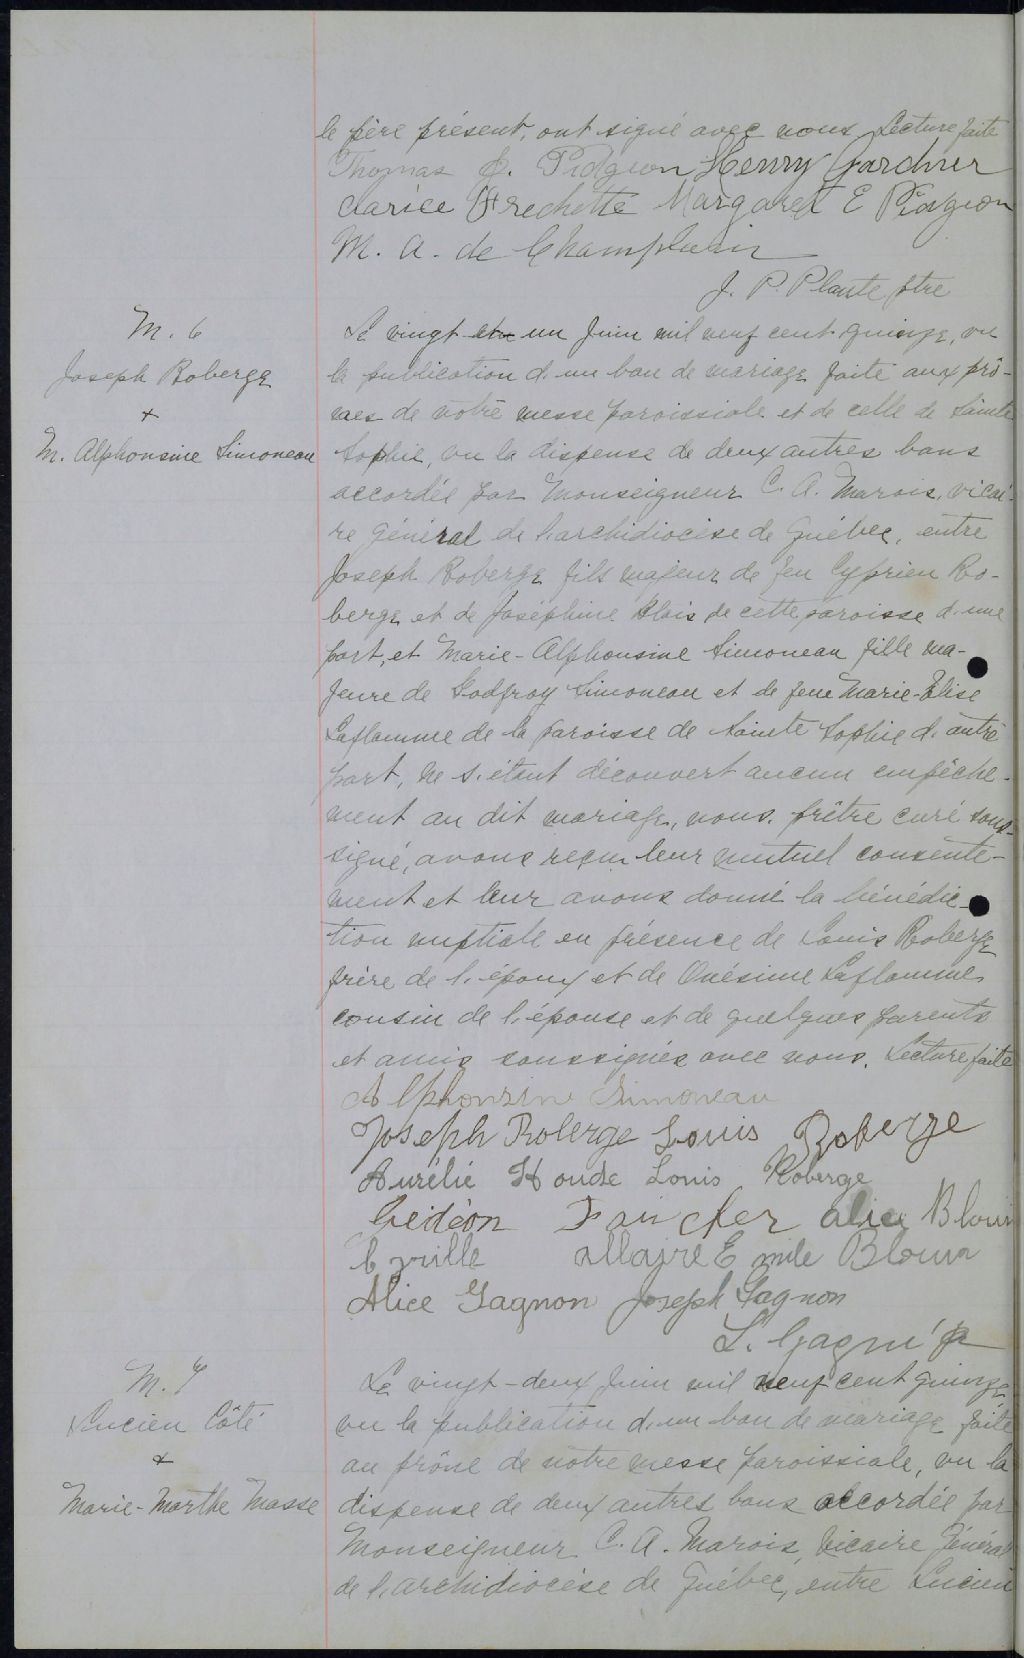 le père présent, ont signé avec nous. Lecture faite
Thomas J. Pidgion Henry Gardner
Clarice Frechette Margaret E Pidgion
M. A. de Champlain
J. P. Plante ptre
M. 6
Joseph Roberge
+
M. Alphonsine Simoneau
Le vingt et un Juin mil neuf cent quinze, vu
la publication d'un ban de mariage faite aux prô-
nes de notre messe paroissiale et de celle de Sainte
Sophie, vu la dispense de deux autres bans
accordée par Monseigneur C. A. Marois, vicai-
re général de l'archidiocèse de Québec, entre
Joseph Roberge fils majeur de feu Cyprien Ro-
berge et de Joséphine Blais de cette paroisse d'une
part, et Marie-Alphonsine Simoneau fille ma-
jeure de Godfroy Simoneau et de feue Marie-Elise
Laflamme de la paroisse de Sainte Sophie d'autre
part, ne s'étant découvert aucun empêche-
ment au dit mariage, nous, prêtre curé sous-
signé, avons reçu leur mutuel consente-
ment et leur avons donné la bénédic-
tion nuptiale en présence de Louis Roberge
frère de l'époux et de Onésime Laflamme
cousin de l'épouse et de quelques parents
et amis soussignés avec nous. Lecture faite
Alphonsine Simoneau
Joseph Roberge Louis Roberge
Aurélie Houde Louis Roberge
Gédéon Faucher Alice Blouin
Cyrille Allaire Emile Blouin
Alice Gagnon Joseph Gagnon
L. Gagné p
M. 7
Lucien Côté
+
Marie-Marthe Masse
Le vingt-deux Juin mil neuf cent quinze,
vu la publication d'un ban de mariage faite
au prône de notre messe paroissiale, vu la
dispense de deux autres bans accordée par
Monseigneur C. A. Marois, Vicaire Général
de l'archidiocèse de Québec, entre Lucien